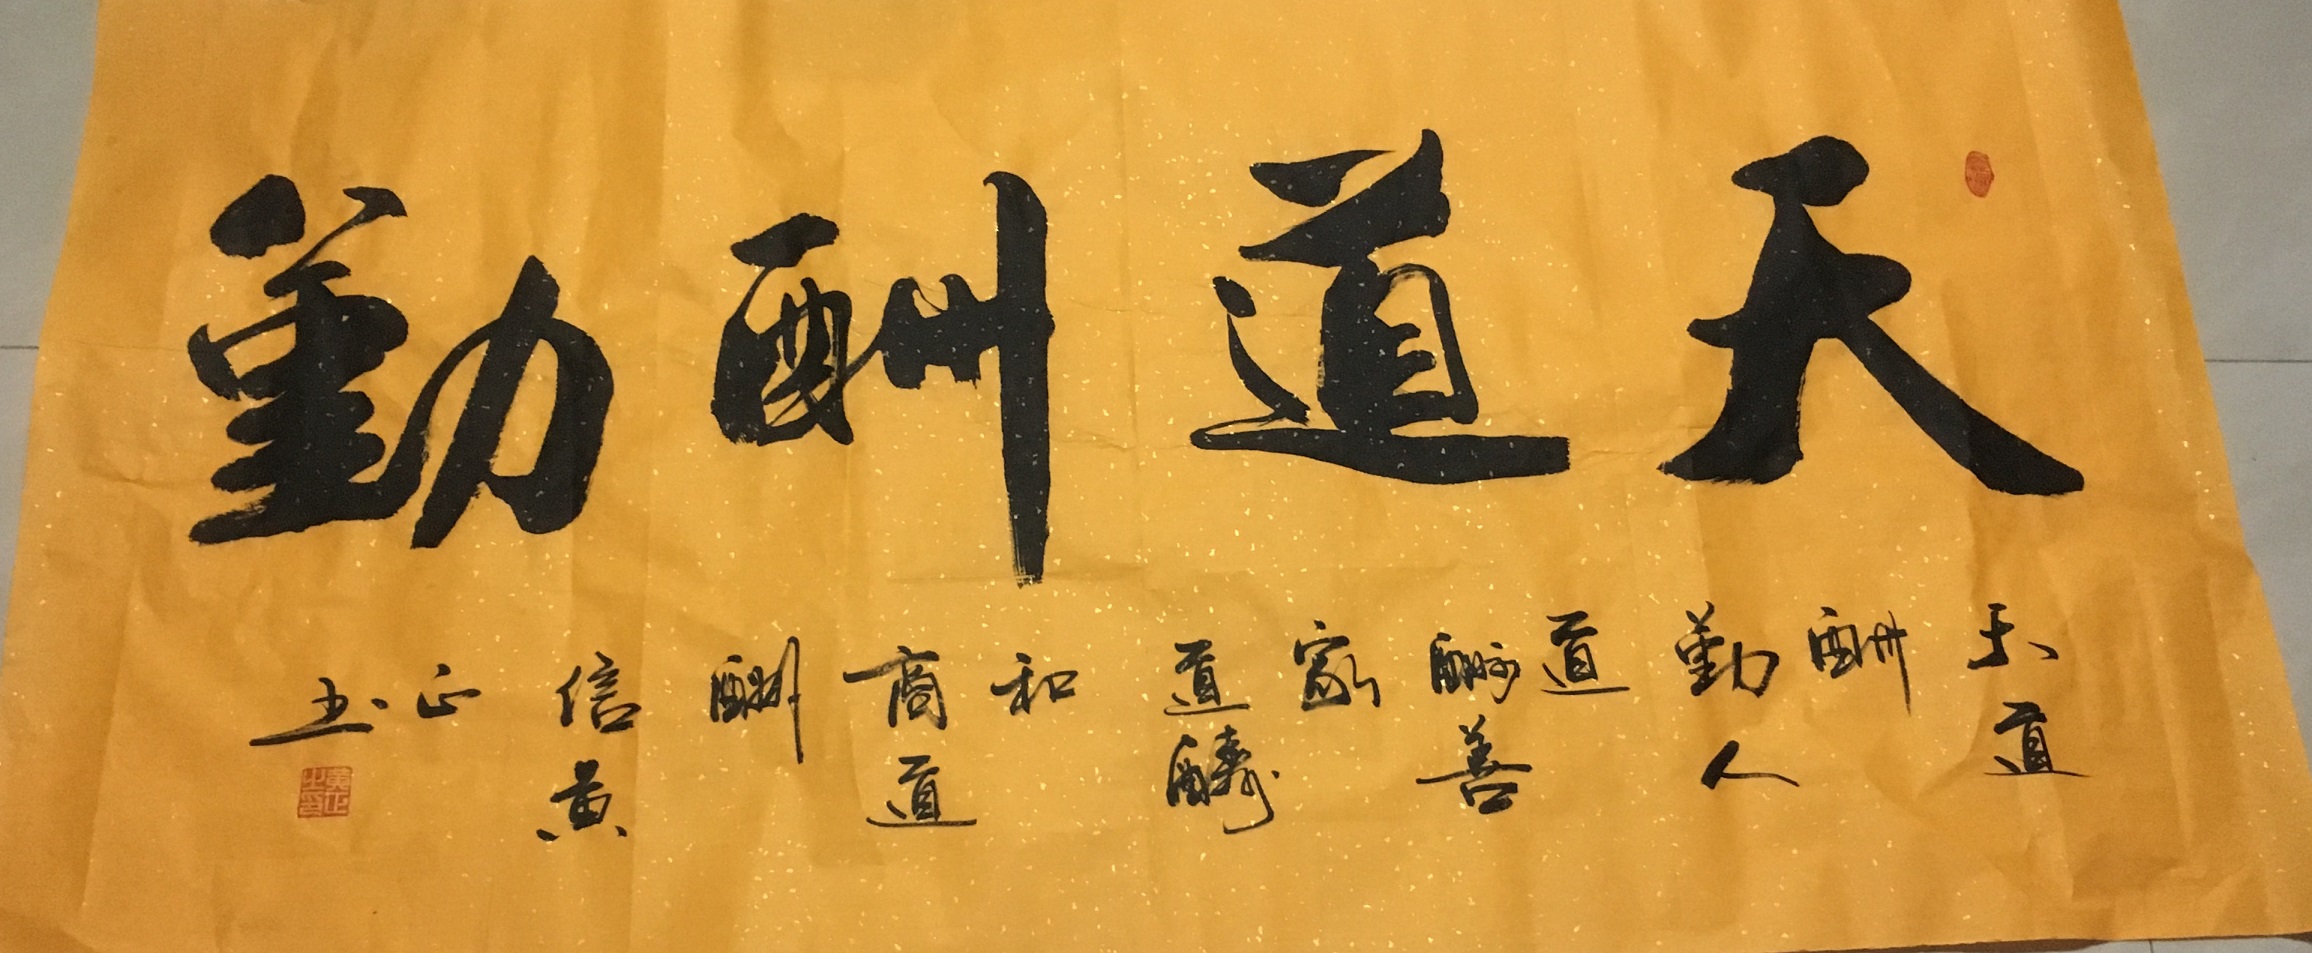 天道酬勤
天道
酬
勤人
道
酬善
家
道醻
和
商道
酬
信黄
正
书
黄正之印